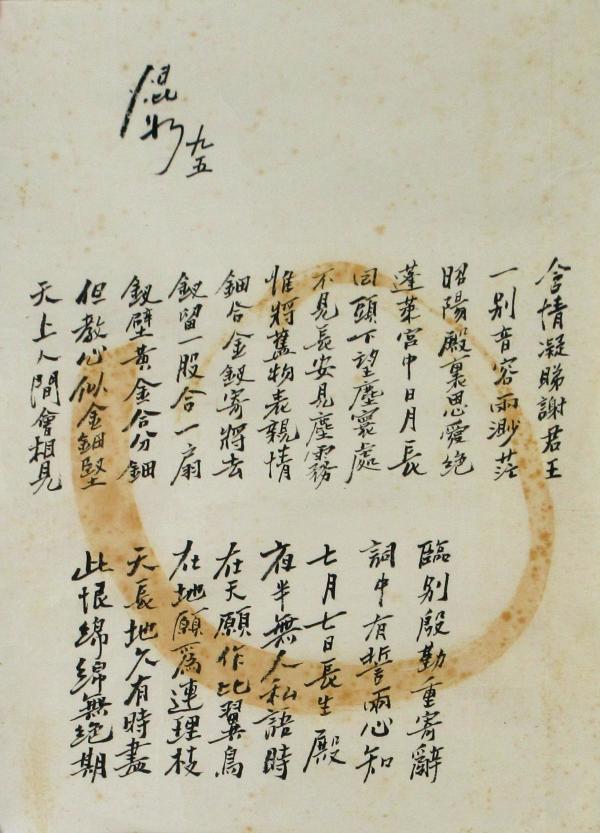 含情凝睇謝君王
一别音容兩渺茫
昭陽殿裏恩愛絕
蓬萊宮中日月長
回頭下望塵寰處
不見長安見塵霧
惟將舊物表親情
鈿合金釵寄將去
釵留一股合一扇
釵擘黃金合分鈿
但教心似金鈿堅
天上人間會相見
臨别殷勤重寄辭
詞中有誓兩心知
七月七日長生殿
夜半無人私語時
在天願作比翼鳥
在地願爲連理枝
天長地久有時盡
此恨綿綿無絕期
九五